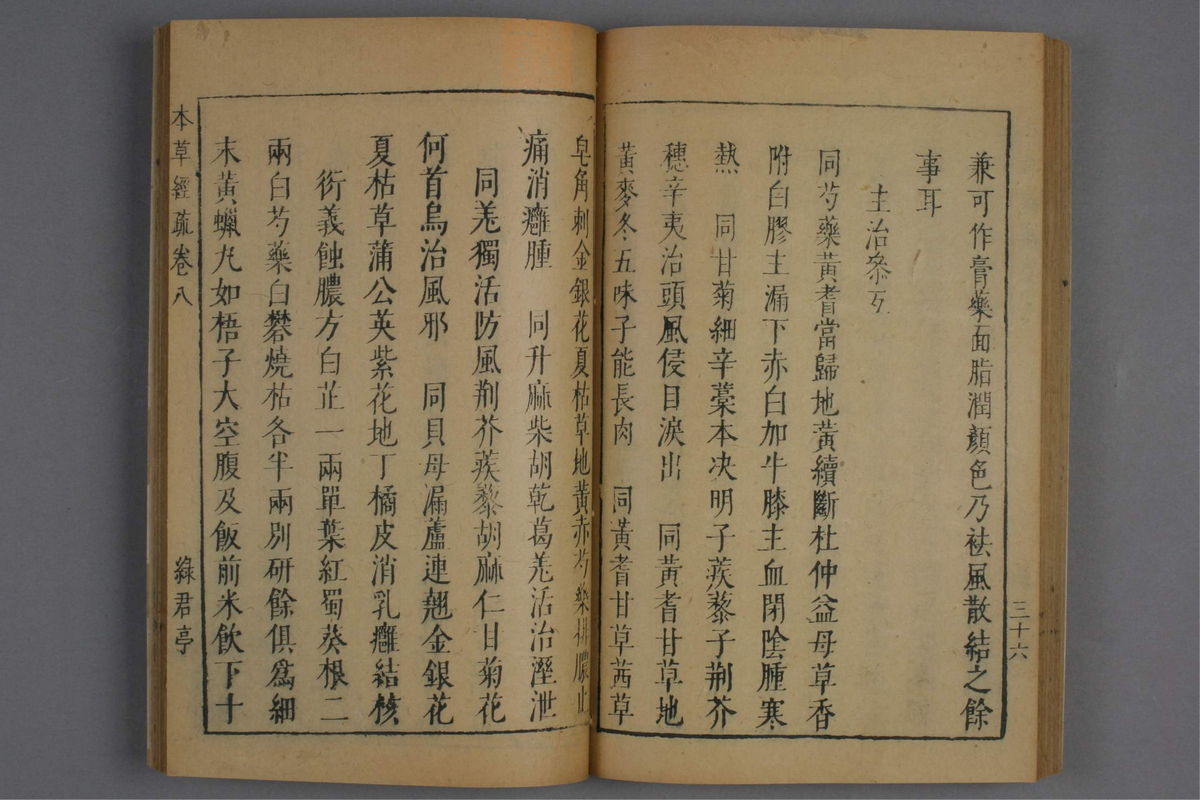 兼可作膏藥面脂潤顏色乃祛風散結之餘
事耳
主治叅互
同芍藥黃耆當歸地黃續斷杜仲益母草香
附白膠主漏下赤白加牛膝主血閉陰腫寒
熱　同甘菊細辛藁本决明子蒺藜子荆芥
穗辛夷治頭風侵目淚出　同黃耆甘草地
黃麥冬五味子能長肉　同黃耆甘草茜草
三十六
皂角刺金銀花夏枯草地黃赤芍藥排膿止
痛消癰腫　同升麻柴胡乾葛羗活治溼泄
同羗獨活防風荆芥蒺藜胡麻仁甘菊花
何首烏治風邪　同貝母漏蘆連翹金銀花
夏枯草蒲公英紫花地丁橘皮消乳癰結核
衍義蝕膿方白芷一兩單葉紅蜀葵根二
兩白芍藥白礬燒枯各半兩別硏餘俱爲細
末黃蠟丸如梧子大空腹及飯前米飲下十
本草經疏卷八
綠君亭